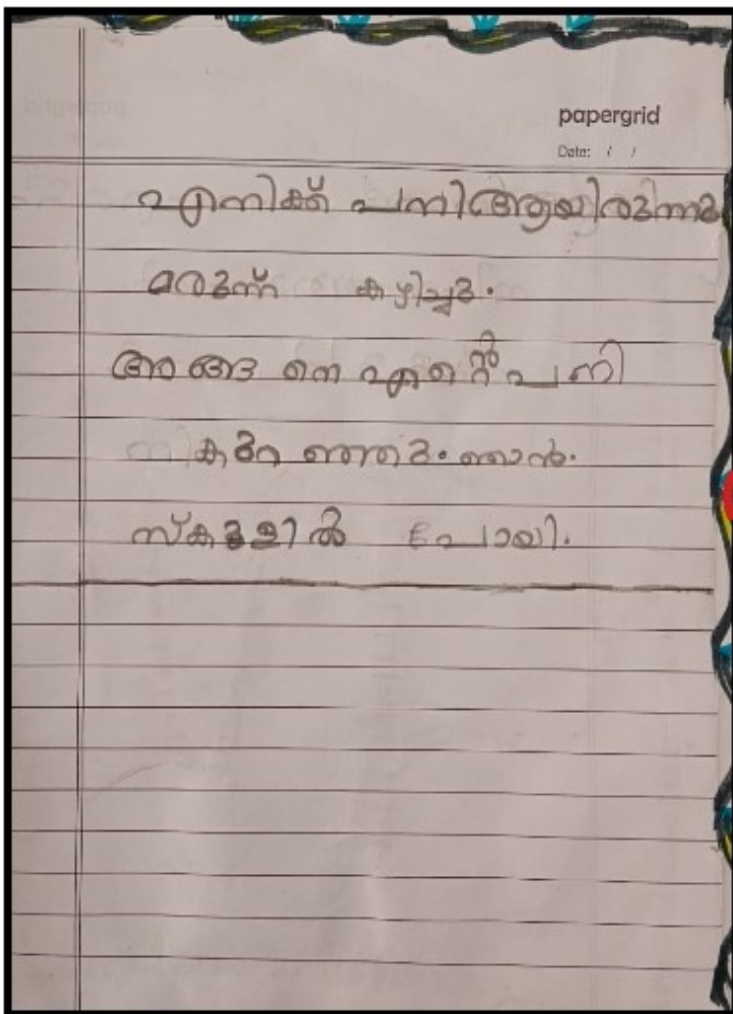 papergrid
Date: / /
എനിക്ക് പനിആയിരുന്നു
മരുന്ന് കഴിച്ചു.
അങ്ങ നെ എന്റെ പനി
കുറ ഞ്ഞു. ഞാൻ.
സ്കൂളിൽ പോയി.